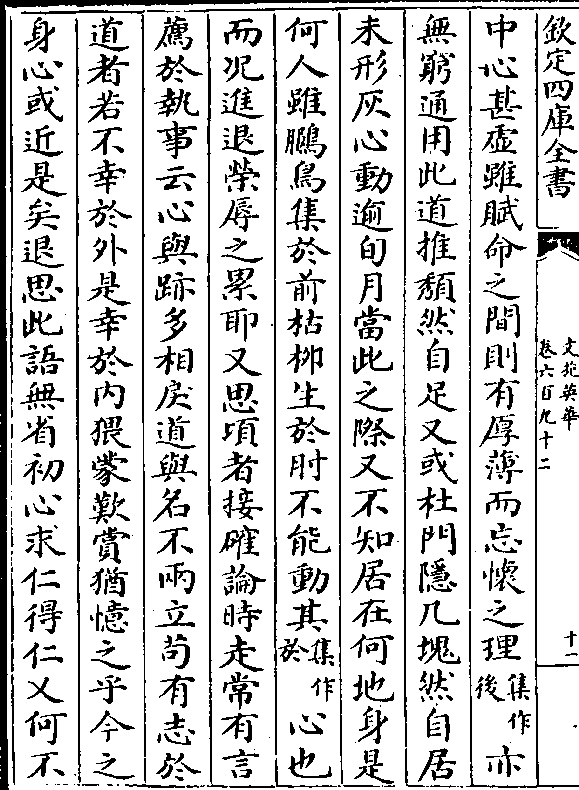 欽定四庫全書
文苑英華
卷六百九十二
十二
中心甚虛雖賦命之間則有厚薄而忘懷之理集作後亦
無窮通用此道推頽然自足又或杜門隱几塊然自居
未形灰心動逾旬月當此之際又不知居在何地身是
何人雖鵬鳥集於前枯栁生於肘不能動其集作於心也
而况進退榮辱之累耶又思頃者接確論時走常有言
薦於執事云心與跡多相戾道與名不兩立苟有志於
道者若不幸於外是幸於内猥蒙歎賞猶憶之乎今之
身心或近是矣退思此語無省初心求仁得仁又何不